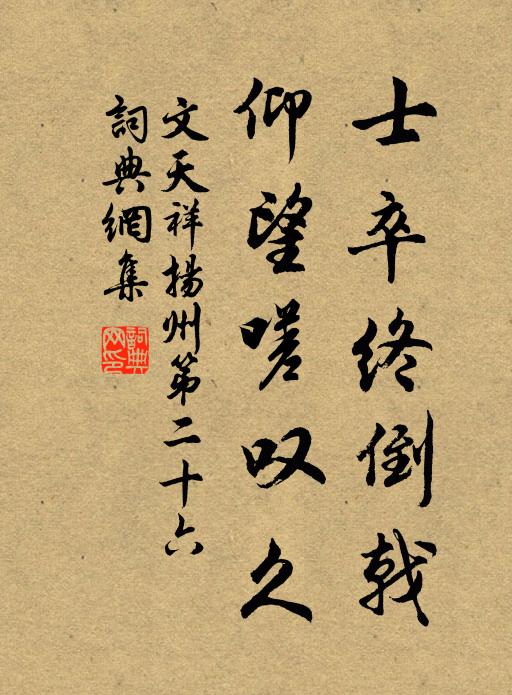 士卒终倒戟
仰望嗟叹久
文天祥揚州第二十六
詞典網集
詞典网印